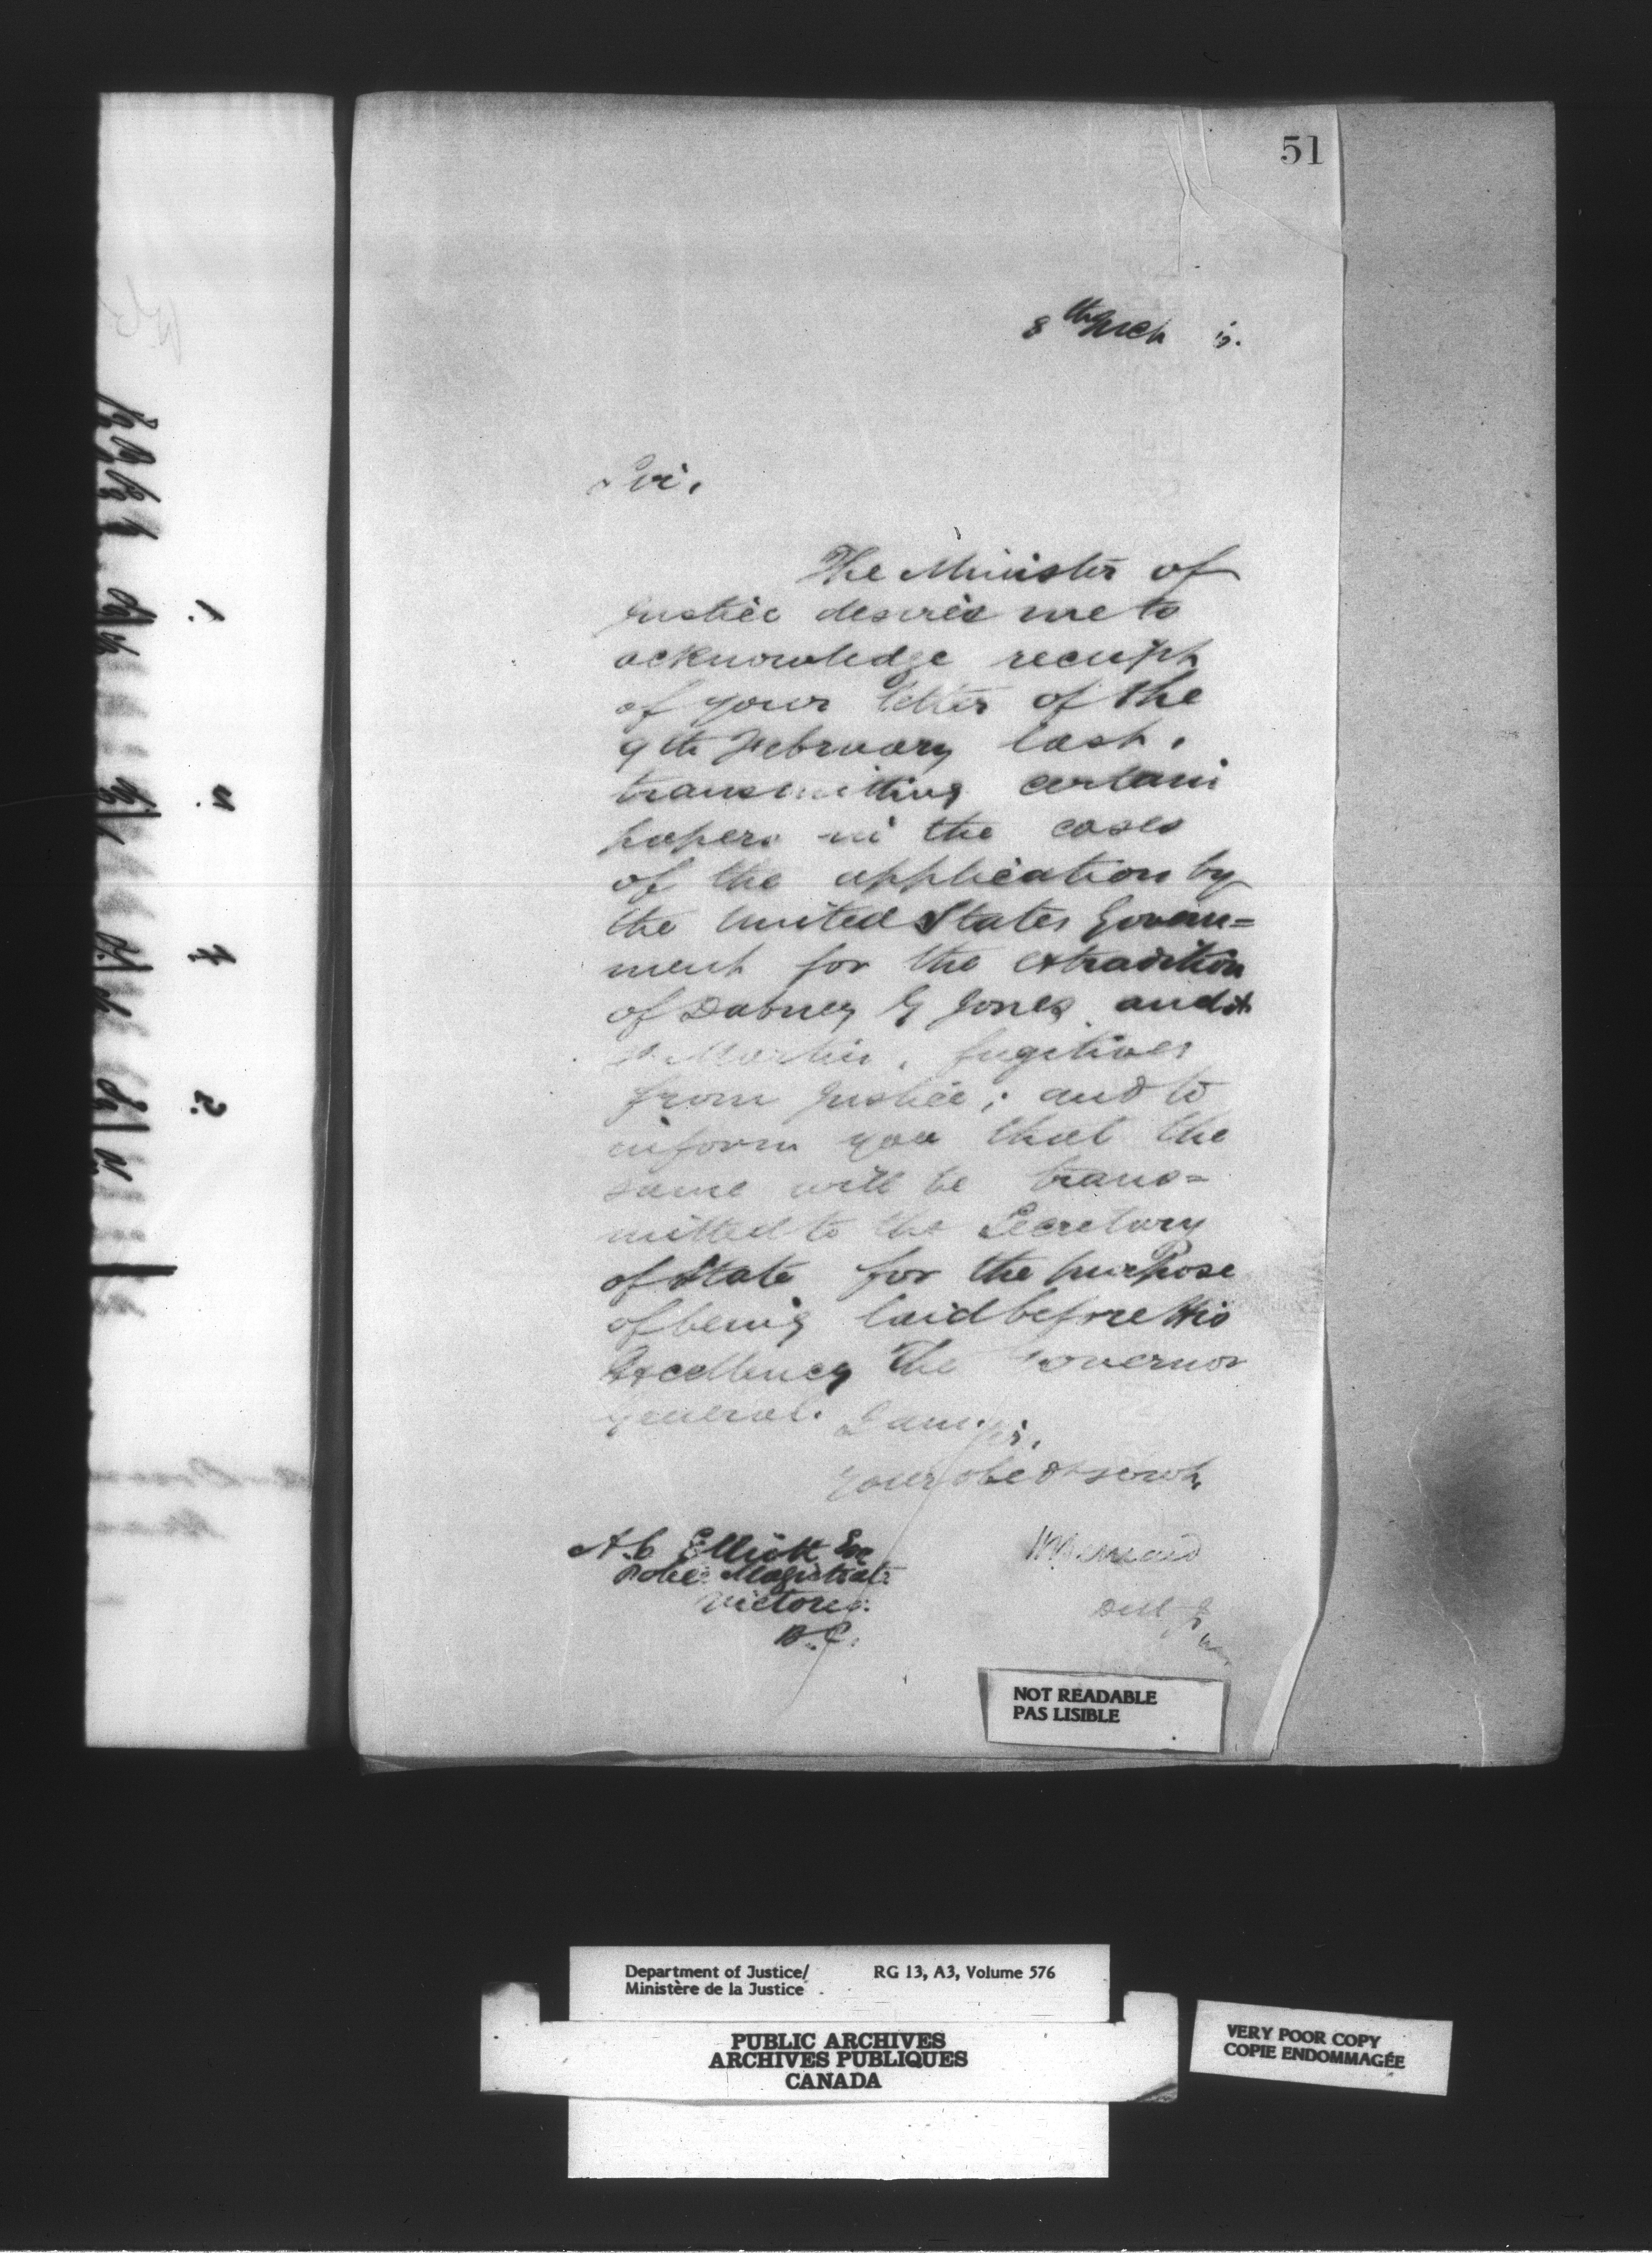 51
8th Mch
Sir,
The Minister of
Justice desires me to
acknowledge receipt
of your letter of the
9th February last,
transmitting certain
papers in the cases
of the application by
the United States Govern=
ment for the extradition
of Dabney G Jones and
Martin, fugitives
from Justice; and to
inform you that the
same will be trans=
mitted to the Secretary
of State for the purpose
of being laid before His
Excellency The Governor
General. I am, Sir,
Your obedt servt,
A.C. Elliott Esq
Police Magistrate
Victoria
B.C.
NOT READABLE
PAS LISIBLE
Department of Justice/ RG 13, A3, Volume 576
Ministère de la Justice
PUBLIC ARCHIVES
ARCHIVES PUBLIQUES
CANADA
VERY POOR COPY
COPIE ENDOMMAGÉE